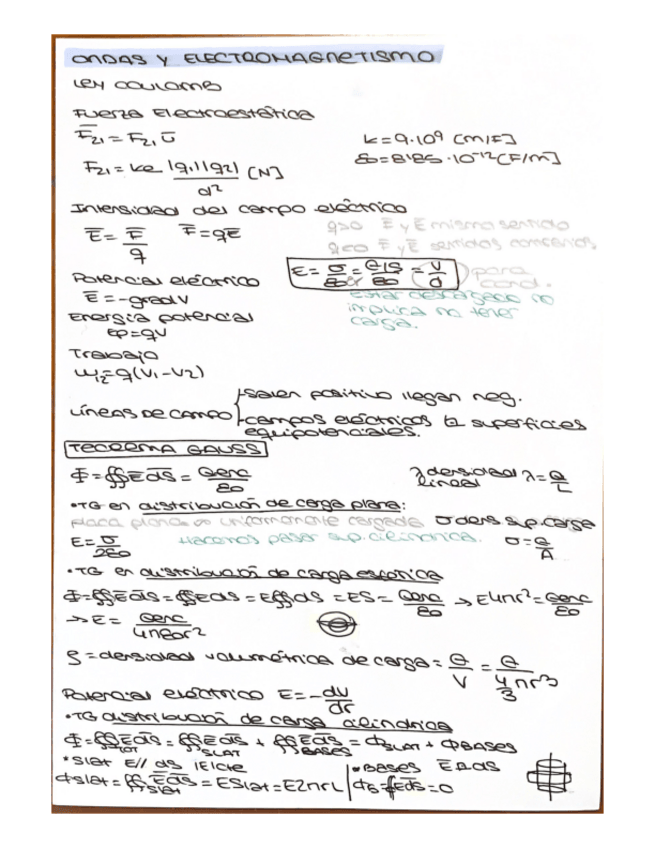 ONDAS Y ELECTROMAGNETISMO
LEY COULOMB
Fuerza Electroestática
F̅₂₁ = F₂₁ u̅
k = 9·10⁹ [m/F]
ε₀ = 8'85·10⁻¹² [F/m]
F₂₁ = ke |q₁||q₂| / d² [N]
Intensidad del campo eléctrico
E̅ = F̅/q F̅ = qE̅
q>0 F̅ y E̅ mismo sentido
q<0 F̅ y E̅ sentidos contrarios
E = σ/ε₀ = Q/S/ε₀ = V/d para cond.
Potencial eléctrico
E̅ = -grad V
Estar descargado no
implica no tener
carga.
Energía potencial
Ep = qV
Trabajo
W₁₂ = q(V₁ - V₂)
LÍNEAS DE CAMPO
salen positivo llegan neg.
campos eléctricos ⊥ superficies
equipotenciales.
TEOREMA GAUSS
Φ = ∯E̅ dS̅ = Qenc/ε₀
λ densidad lineal λ = Q/L
• TG en distribución de carga plana:
placa plana ∞ uniformemente cargada σ dens sup. carga
E = σ/2ε₀ Hacemos pasar sup. cilíndrica. σ = Q/A
• TG en distribución de carga esférica
Φ = ∯E̅ dS̅ = ∯E dS = E∯dS = ES = Qenc/ε₀ → E4πr² = Qenc/ε₀
→ E = Qenc/4πε₀r²
ρ = densidad volumétrica de carga = Q/V = Q/(4/3 πr³)
Potencial eléctrico E = -dV/dr
• TG distribución de carga cilíndrica
Φ = ∯TOT E̅ dS̅ = ∯SLAT E̅ dS̅ + ∯BASES E̅ dS̅ = ΦSLAT + ΦBASES
* Slat E // dS |E| cte
• BASES E̅ ⊥ dS
Φslat = ∯Slat E̅ dS̅ = ESlat = E2πrL
ΦB = ∮E̅ dS̅ = 0